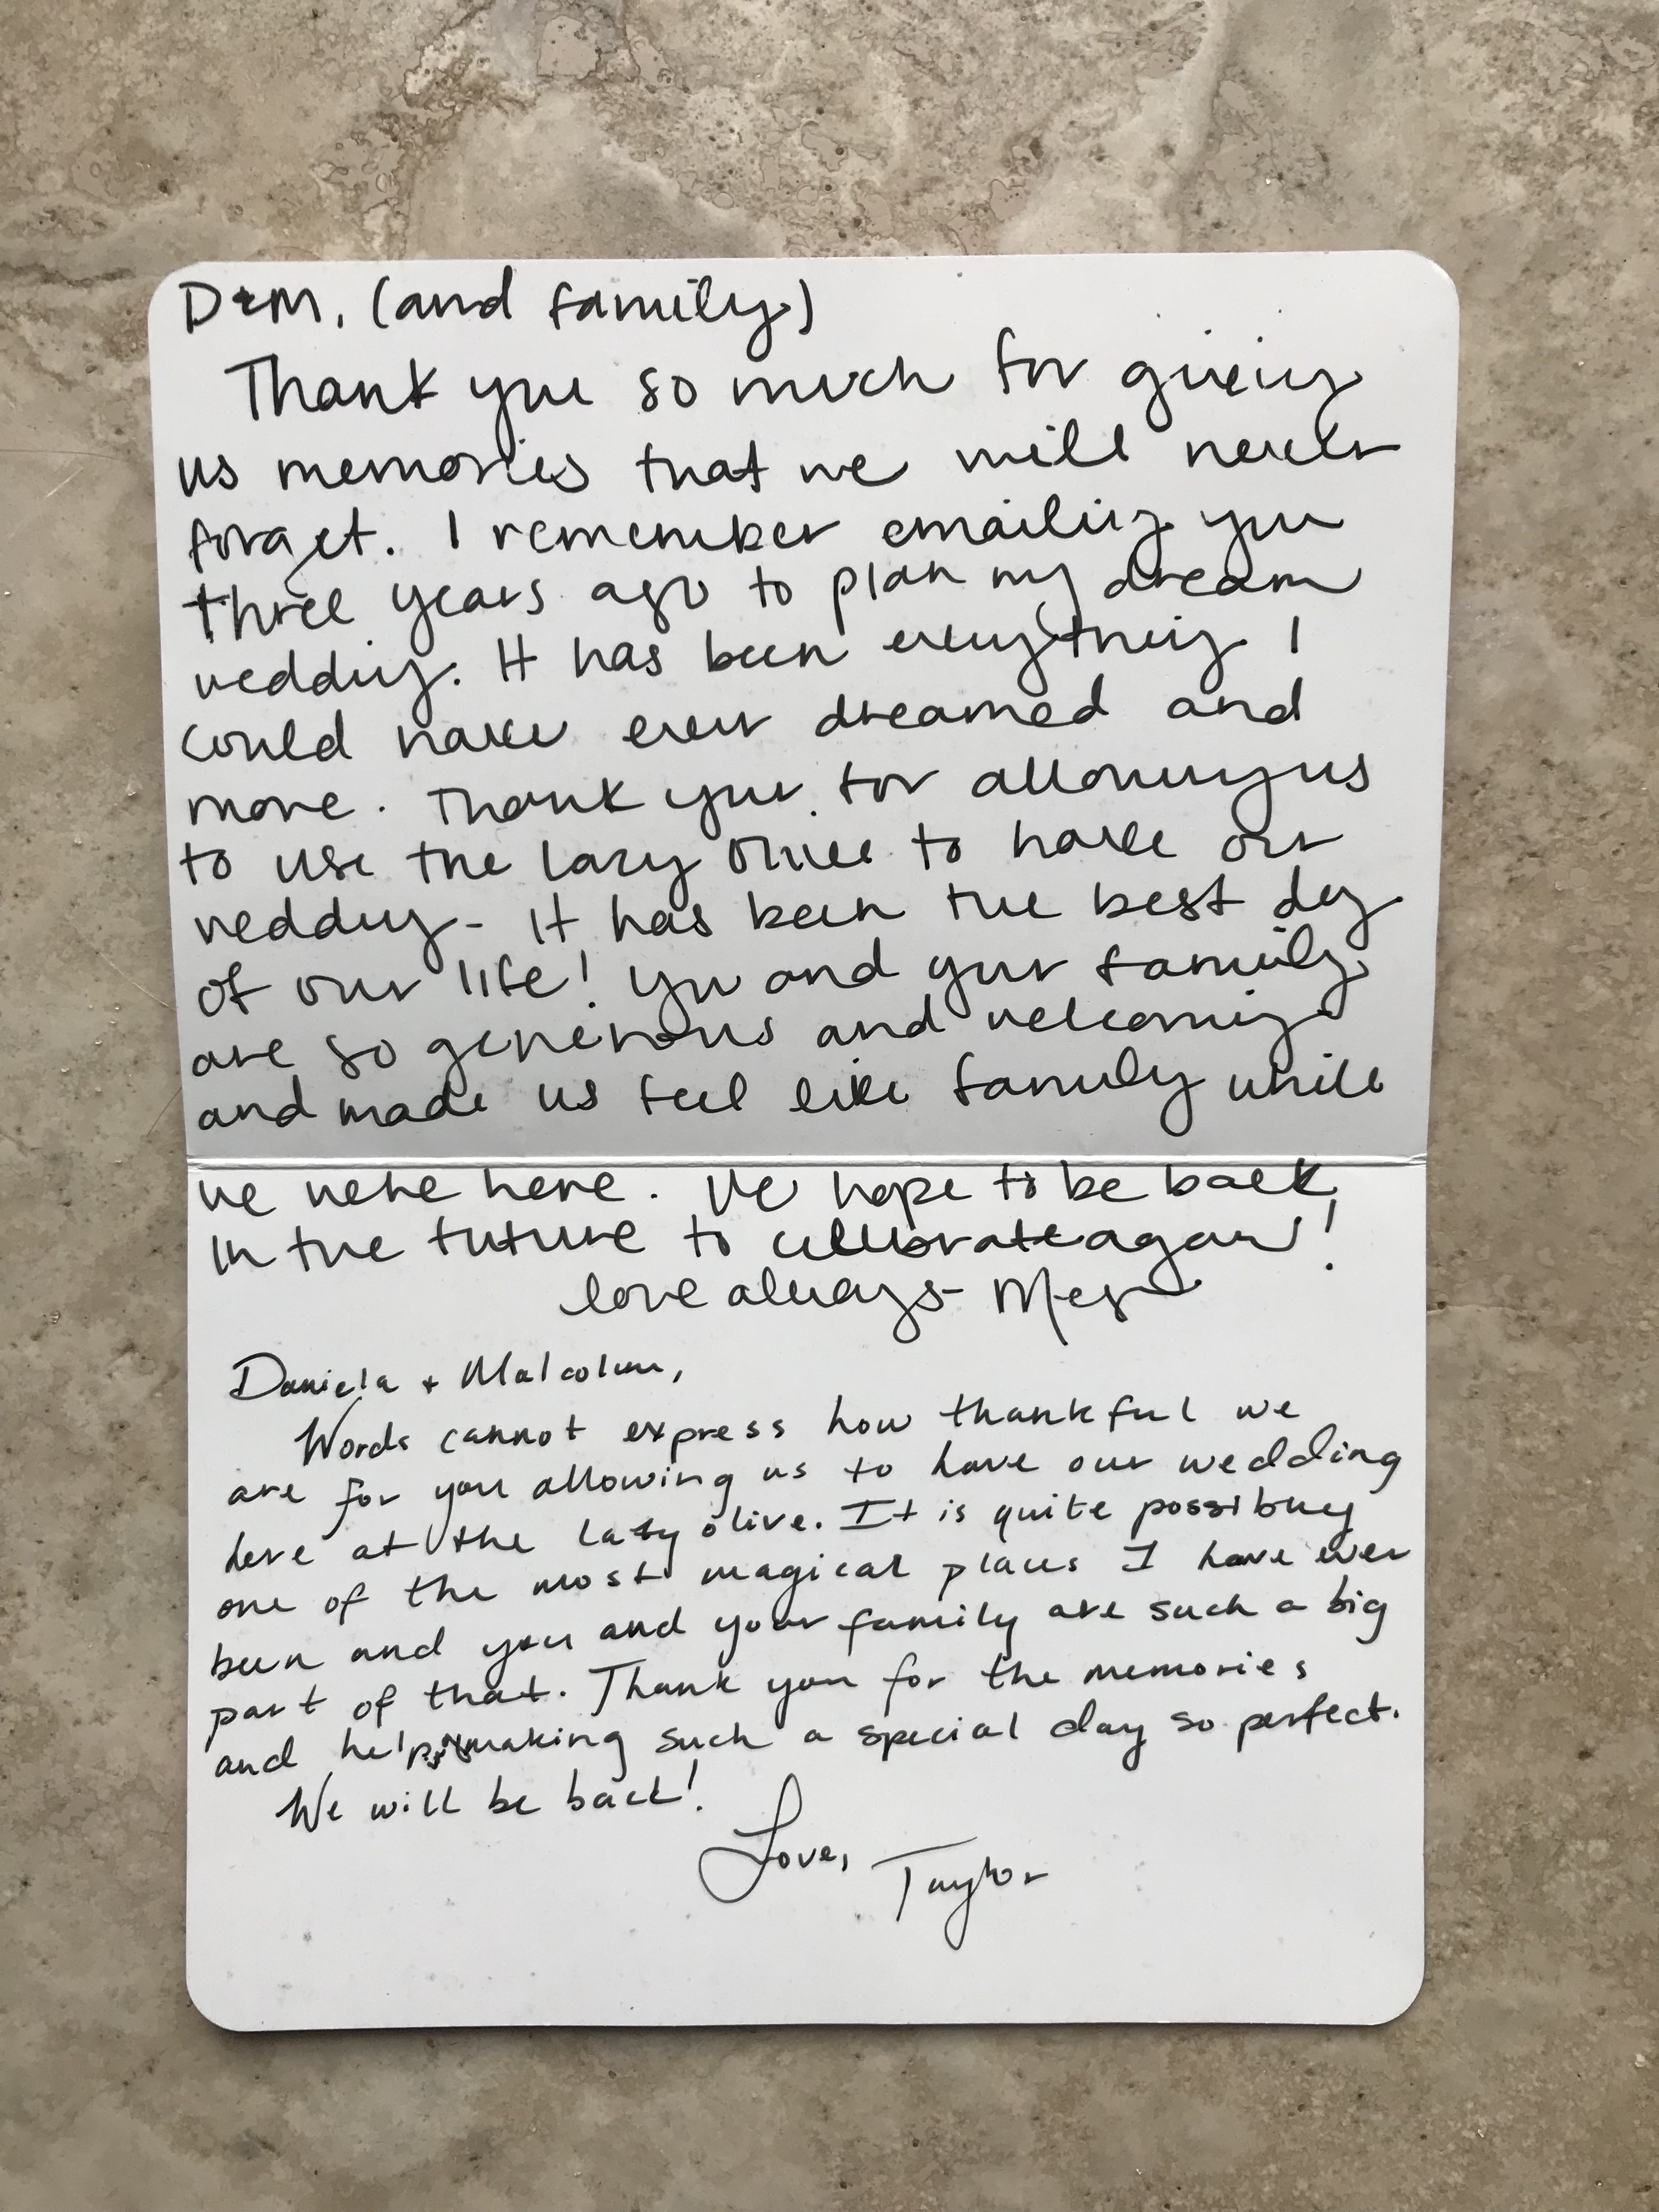 D+M, (and family)
Thank you so much for giving
us memories that we will never
forget. I remember emailing you
three years ago to plan my dream
wedding. It has been everything I
could have ever dreamed and
more. Thank you for allowing us
to use the lazy olive to have our
wedding - It has been the best day
of our life! You and your family
are so generous and welcoming
and made us feel like family while
we were here. We hope to be back
in the future to celebrate again!
love always - Meg
Daniela + Malcolm,
Words cannot express how thankful we
are for you allowing us to have our wedding
here at the lazy olive. It is quite possibly
one of the most magical places I have ever
been and you and your family are such a big
part of that. Thank you for the memories
and help making such a special day so perfect.
We will be back!
Love,
Taylor